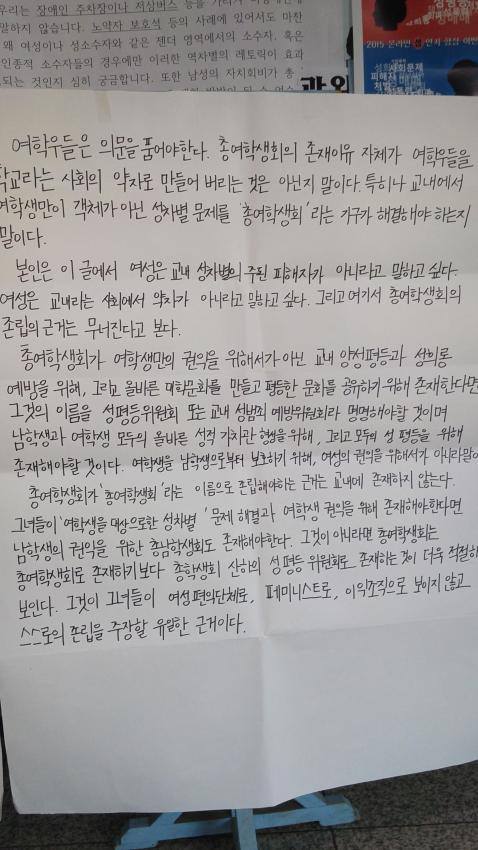 우리는 장애인 주차장이나 저상버스
말하지 않습니다. 노약자 보호석 등의 사례에 있어서도 마찬
왜 여성이나 성소수자와 같은 젠더 영역에서의 소수자, 혹은
인종적 소수자들의 경우에만 이러한 역차별의 레토릭이 효과
되는 것인지 심히 궁금합니다. 또한 남성의 자치회비가 총
2015 온라인 성
여학우들은 의문을 품어야한다. 총여학생회의 존재이유 자체가 여학우들을
학교라는 사회의 약자로 만들어 버리는 것은 아닌지 말이다. 특히나 교내에서
여학생만이 객체가 아닌 성차별 문제를 '총여학생회'라는 기구가 해결해야 하는지
말이다.
본인은 이 글에서 여성은 교내 성차별의 주된 피해자가 아니라고 말하고 싶다.
여성은 교내라는 사회에서 약자가 아니라고 말하고 싶다. 그리고 여기서 총여학생회의
존립의 근거는 무너진다고 본다.
총여학생회가 여학생만의 권익을 위해서가 아닌 교내 양성평등과 성희롱
예방을 위해, 그리고 올바른 대학문화를 만들고 평등한 문화를 공유하기 위해 존재한다면
그것의 이름을 성평등위원회 또는 교내 성범죄 예방위원회라 명명해야할 것이며
남학생과 여학생 모두의 올바른 성적 가치관 형성을 위해, 그리고 모두의 성 평등을 위해
존재해야할 것이다. 여학생을 남학생으로부터 보호하기 위해, 여성의 권익을 위해서가 아니라말이
총여학생회가 '총여학생회'라는 이름으로 존립해야하는 근거는 교내에 존재하지 않는다.
그녀들이 '여학생을 대상으로한 성차별' 문제 해결과 여학생 권익을 위해 존재해야한다면
남학생의 권익을 위한 총남학생회도 존재해야한다. 그것이 아니라면 총여학생회는
총여학생회로 존재하기보다 총학생회 산하의 성 평등 위원회로 존재하는 것이 더욱 적절하
보인다. 그것이 그녀들이 여성편의단체로, 페미니스트로, 이익조직으로 보이지 않고
스스로의 존립을 주장할 유일한 근거이다.